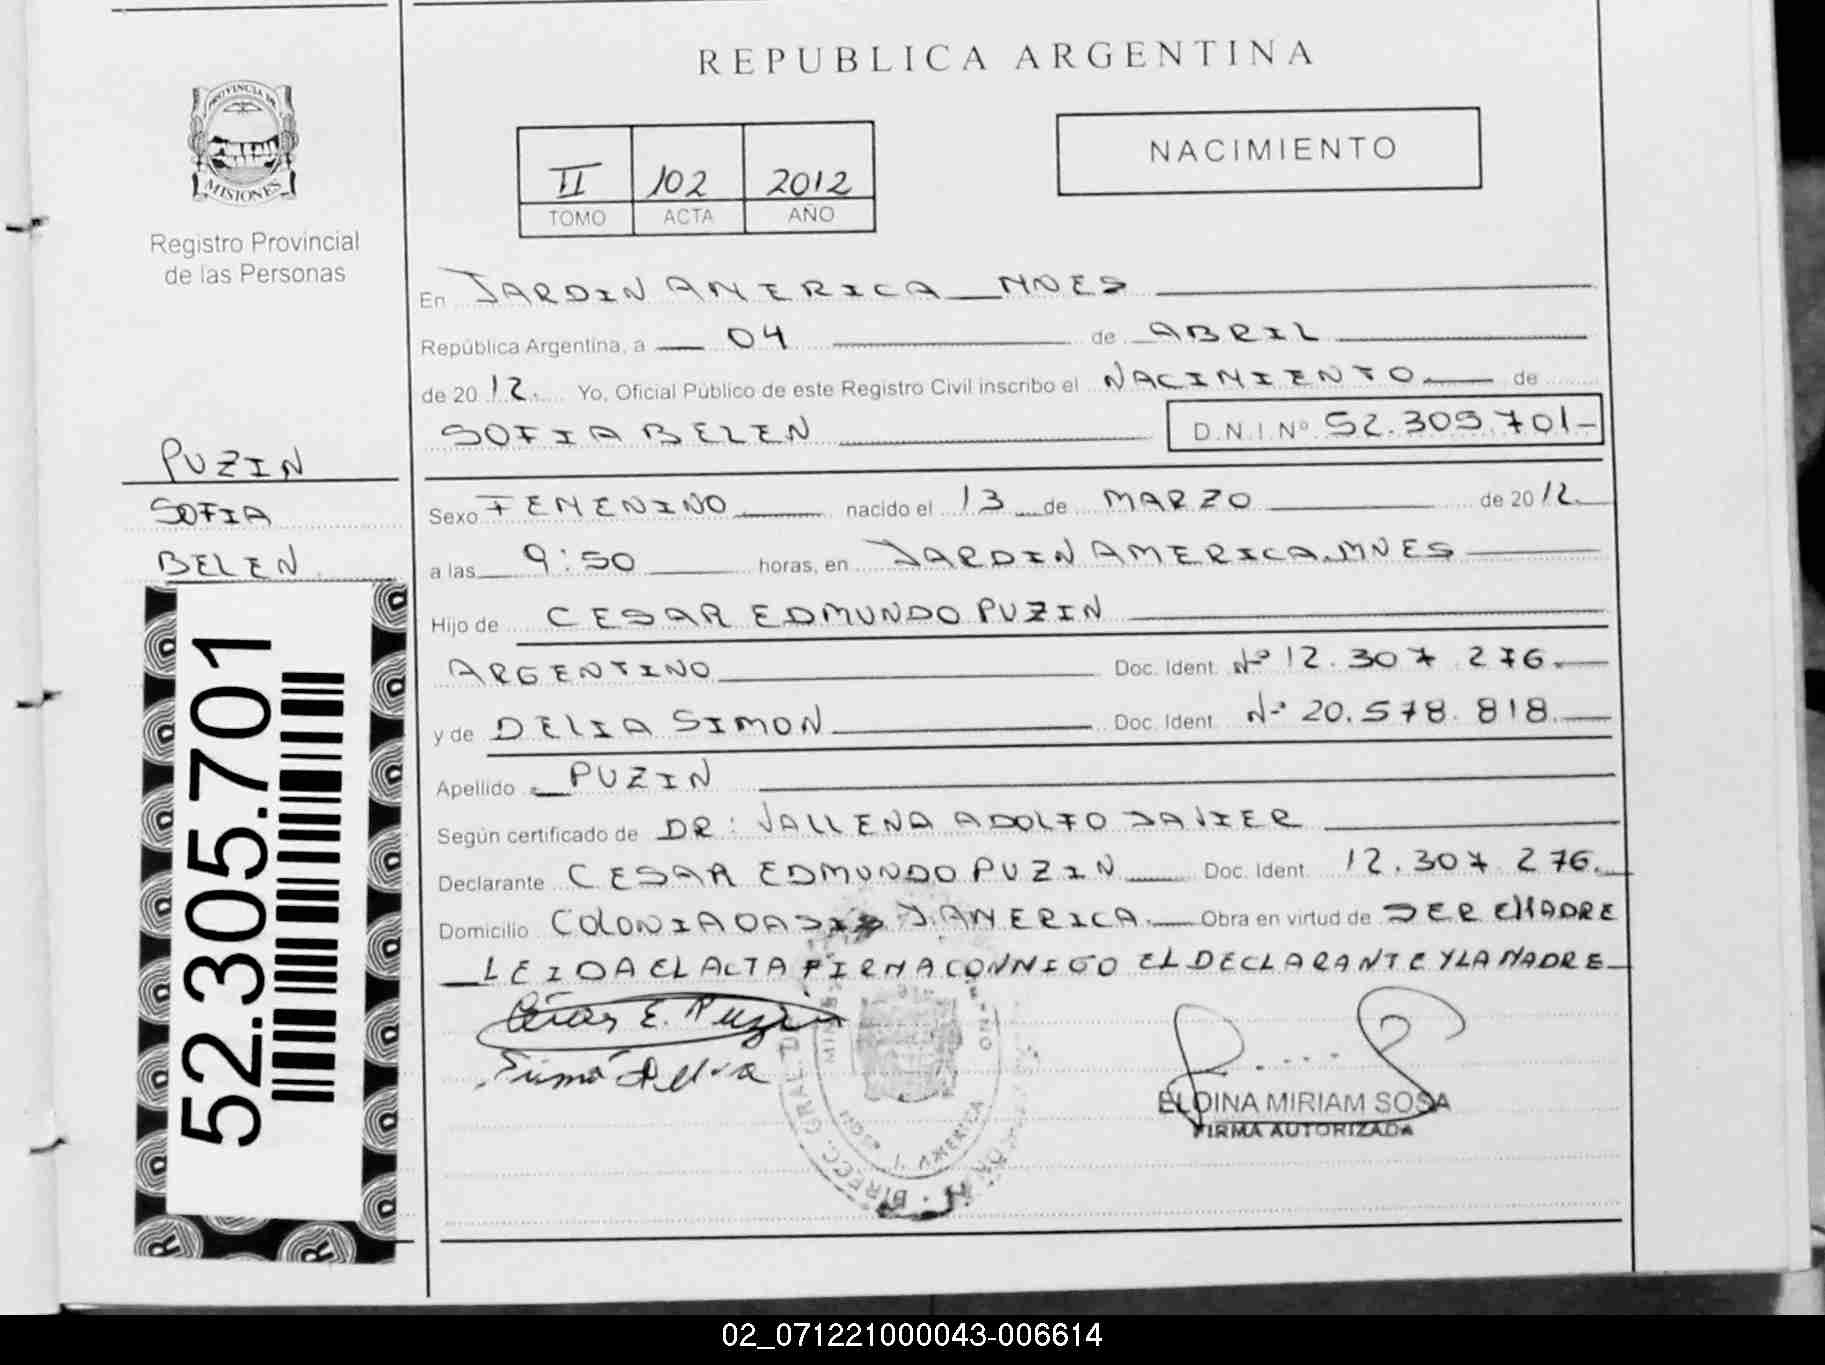 REPUBLICA ARGENTINA
PROVINCIA DE
MISIONES
Registro Provincial
de las Personas
II 102 2012
TOMO ACTA AÑO
NACIMIENTO
En JARDIN AMERICA MNES
República Argentina, a 04 de ABRIL
de 20 12. Yo, Oficial Público de este Registro Civil inscribo el NACIMIENTO de
SOFIA BELEN D.N.I.Nº 52.305.701-
PUZIN
SOFIA
BELEN
52.305.701
Sexo FEMENINO nacido el 13 de MARZO de 20 12.
a las 9:50 horas, en JARDIN AMERICA.MNES
Hijo de CESAR EDMUNDO PUZIN
ARGENTINO Doc. Ident. Nº 12.307.276.
y de DELIA SIMON Doc. Ident. Nº 20.578.818.
Apellido PUZIN
Según certificado de DR: VALLENA ADOLFO JAVIER
Declarante CESAR EDMUNDO PUZIN Doc. Ident. 12.307.276.
Domicilio COLONIA OASIS J. AMERICA. Obra en virtud de SER PADRE
LEIDA EL ACTA FIRMA CONMIGO EL DECLARANTE Y LA MADRE
César E. Puzin
Simón Delia
ELOINA MIRIAM SOSA
FIRMA AUTORIZADA
J. AMERICA
02_071221000043-006614